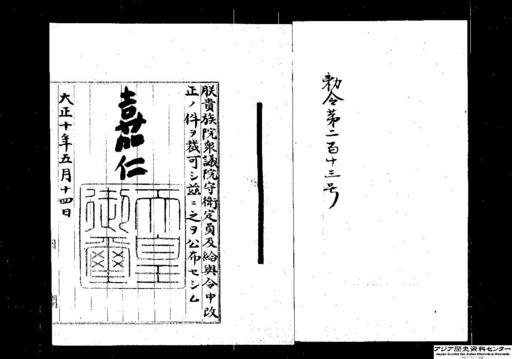 勅令第二百十三号
朕貴族院衆議院守衛定員及給與令中改
正ノ件ヲ裁可シ茲ニ之ヲ公布セシム
嘉仁
天皇
御璽
大正十年五月十四日
アジア歴史資料センター
Japan Center for Asian Historical Records